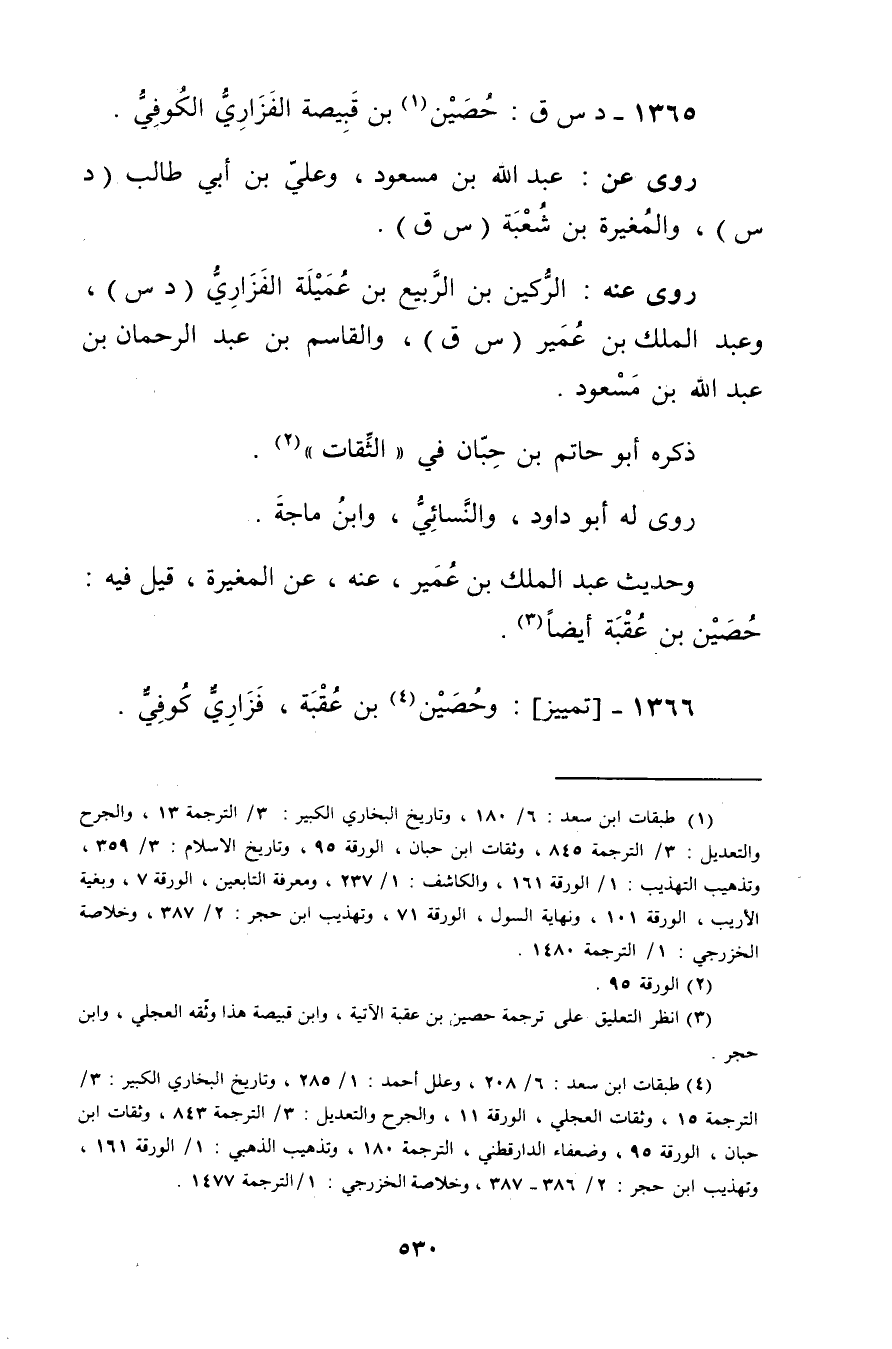 ١٣٦٥ - د س ق : حُصَيْن(١) بن قَبِيصة الفَزَاريُّ الكُوفِيُّ .
روى عن : عبد الله بن مسعود ، وعليّ بن أبي طالب ( د
س ) ، والمُغيرة بن شُعْبَة ( س ق ) .
روى عنه : الرُّكين بن الرَّبيع بن عُمَيْلَة الفَزَاريُّ ( د س ) ،
وعبد الملك بن عُمَير ( س ق ) ، والقاسم بن عبد الرحمان بن
عبد الله بن مَسْعود .
ذكره أبو حاتم بن حِبّان في « الثِّقات »(٢) .
روى له أبو داود ، والنَّسائيُّ ، وابنُ ماجةَ .
وحديث عبد الملك بن عُمَير ، عنه ، عن المغيرة ، قيل فيه :
حُصَيْن بن عُقْبَة أيضاً(٣) .
١٣٦٦ - [تمييز] : وحُصَيْن(٤) بن عُقْبَة ، فَزَاريٌّ كُوفيٌّ .
(١) طبقات ابن سعد : ٦/ ١٨٠ ، وتاريخ البخاري الكبير : ٣/ الترجمة ١٣ ، والجرح
والتعديل : ٣/ الترجمة ٨٤٥ ، وثقات ابن حبان ، الورقة ٩٥ ، وتاريخ الاسلام : ٣/ ٣٥٩ ،
وتذهيب التهذيب : ١/ الورقة ١٦١ ، والكاشف : ١/ ٢٣٧ ، ومعرفة التابعين ، الورقة ٧ ، وبغية
الأريب ، الورقة ١٠١ ، ونهاية السول ، الورقة ٧١ ، وتهذيب ابن حجر : ٢/ ٣٨٧ ، وخلاصة
الخزرجي : ١/ الترجمة ١٤٨٠ .
(٢) الورقة ٩٥ .
(٣) انظر التعليق على ترجمة حصين بن عقبة الآتية ، وابن قبيصة هذا وثّقه العجلي ، وابن
حجر .
(٤) طبقات ابن سعد : ٦/ ٢٠٨ ، وعلل أحمد : ١/ ٢٨٥ ، وتاريخ البخاري الكبير : ٣/
الترجمة ١٥ ، وثقات العجلي ، الورقة ١١ ، والجرح والتعديل : ٣/ الترجمة ٨٤٣ ، وثقات ابن
حبان ، الورقة ٩٥ ، وضعفاء الدارقطني ، الترجمة ١٨٠ ، وتذهيب الذهبي : ١/ الورقة ١٦١ ،
وتهذيب ابن حجر : ٢/ ٣٨٦ - ٣٨٧ ، وخلاصة الخزرجي : ١/الترجمة ١٤٧٧ .
٥٣٠